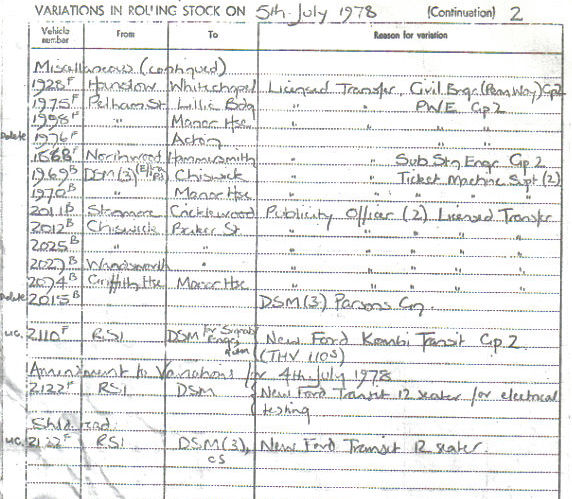 VARIATIONS IN ROLLING STOCK ON 5th July 1978 (Continuation) 2
Vehicle number From To Reason for variation
Miscellaneous (continued)
1928F Hounslow Whitechapel Licensed Transfer Civil Engr (Perm Way) Gp2
1975F Pelham St Lillie Bdg " " PWE Gp 2
1998F " Manor Hse " " "
Delete 1976F " Acton " "
1888F Northwood Hammersmith " " Sub Stn Engr Gp 2
1969B DSM(3) Chiswick " " Ticket Machine Supt (2)
1970B " Manor Hse " " " "
2011B Stanmore Cricklewood Publicity Officer (2) Licensed Transfer
2012B Chiswick Baker St " " " "
2025B " " " " " "
2027B Wandsworth " " " " "
2074B Griffith Hse Manor Hse " " " "
Delete 2015B DSM(3) Parsons Gn.
U.C. 2110F RSI DSM for Signal Engr New Ford Kombi Transit Gp 2
(THV 110S)
Amendment to Variations for 4th July 1978
2122F RSI DSM New Ford Transit 12 seater for electrical
testing
Shld read
U.C. 2122F RSI DSM(3), New Ford Transit 12 seater.
CS